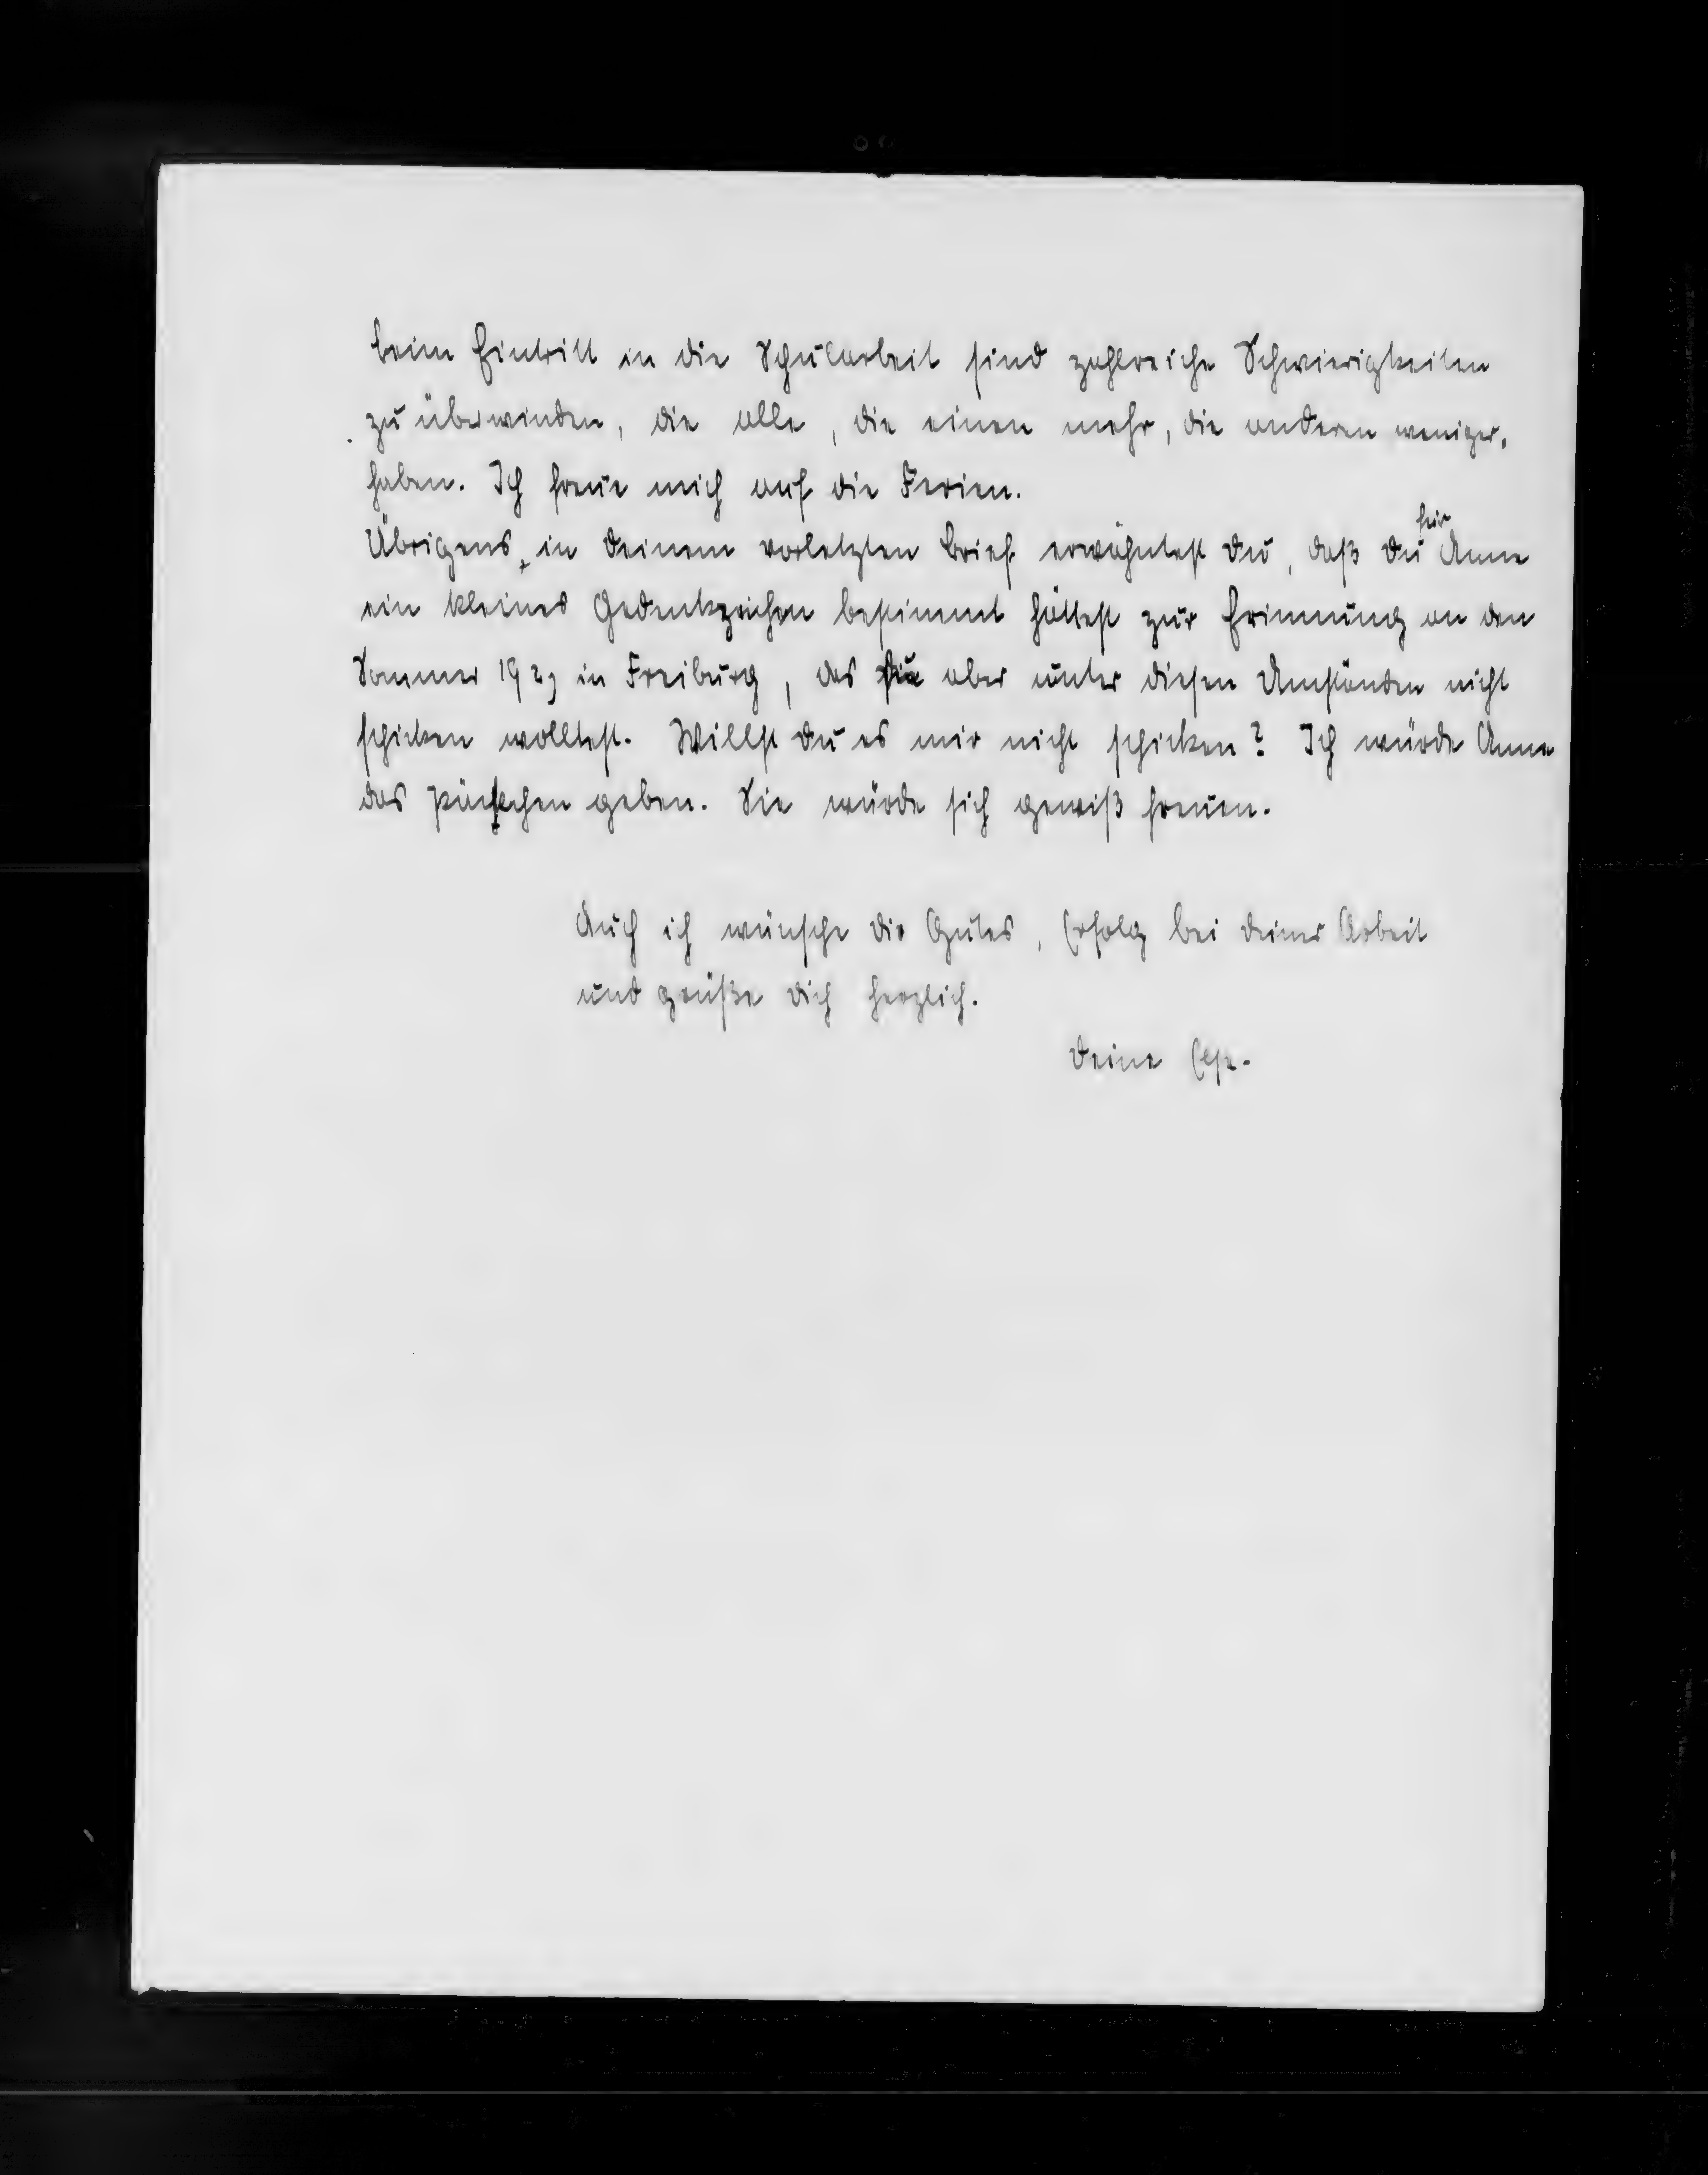 beim Eintritt in die Schularbeit sind zahlreiche Schwierigkeiten
zu überwinden, die alle, die einen mehr, die anderen weniger,
haben. Ich freue mich auf die Ferien.
Übrigens, in deinem vorletzten Brief erwähntest du, daß du für Anne
ein kleines Gedenkzeichen bestimmt hättest zur Erinnung an den
Sommer 1929 in Freiburg, das du aber unter diesen Umständen nicht
schicken wolltest. Willst du es mir nicht schicken? Ich würde Anne
das geben. Sie würde sich gewiß freuen.
Auch ich wünsche dir Gutes, Erfolg bei deiner Arbeit
und grüße dich herzlich.
Deine